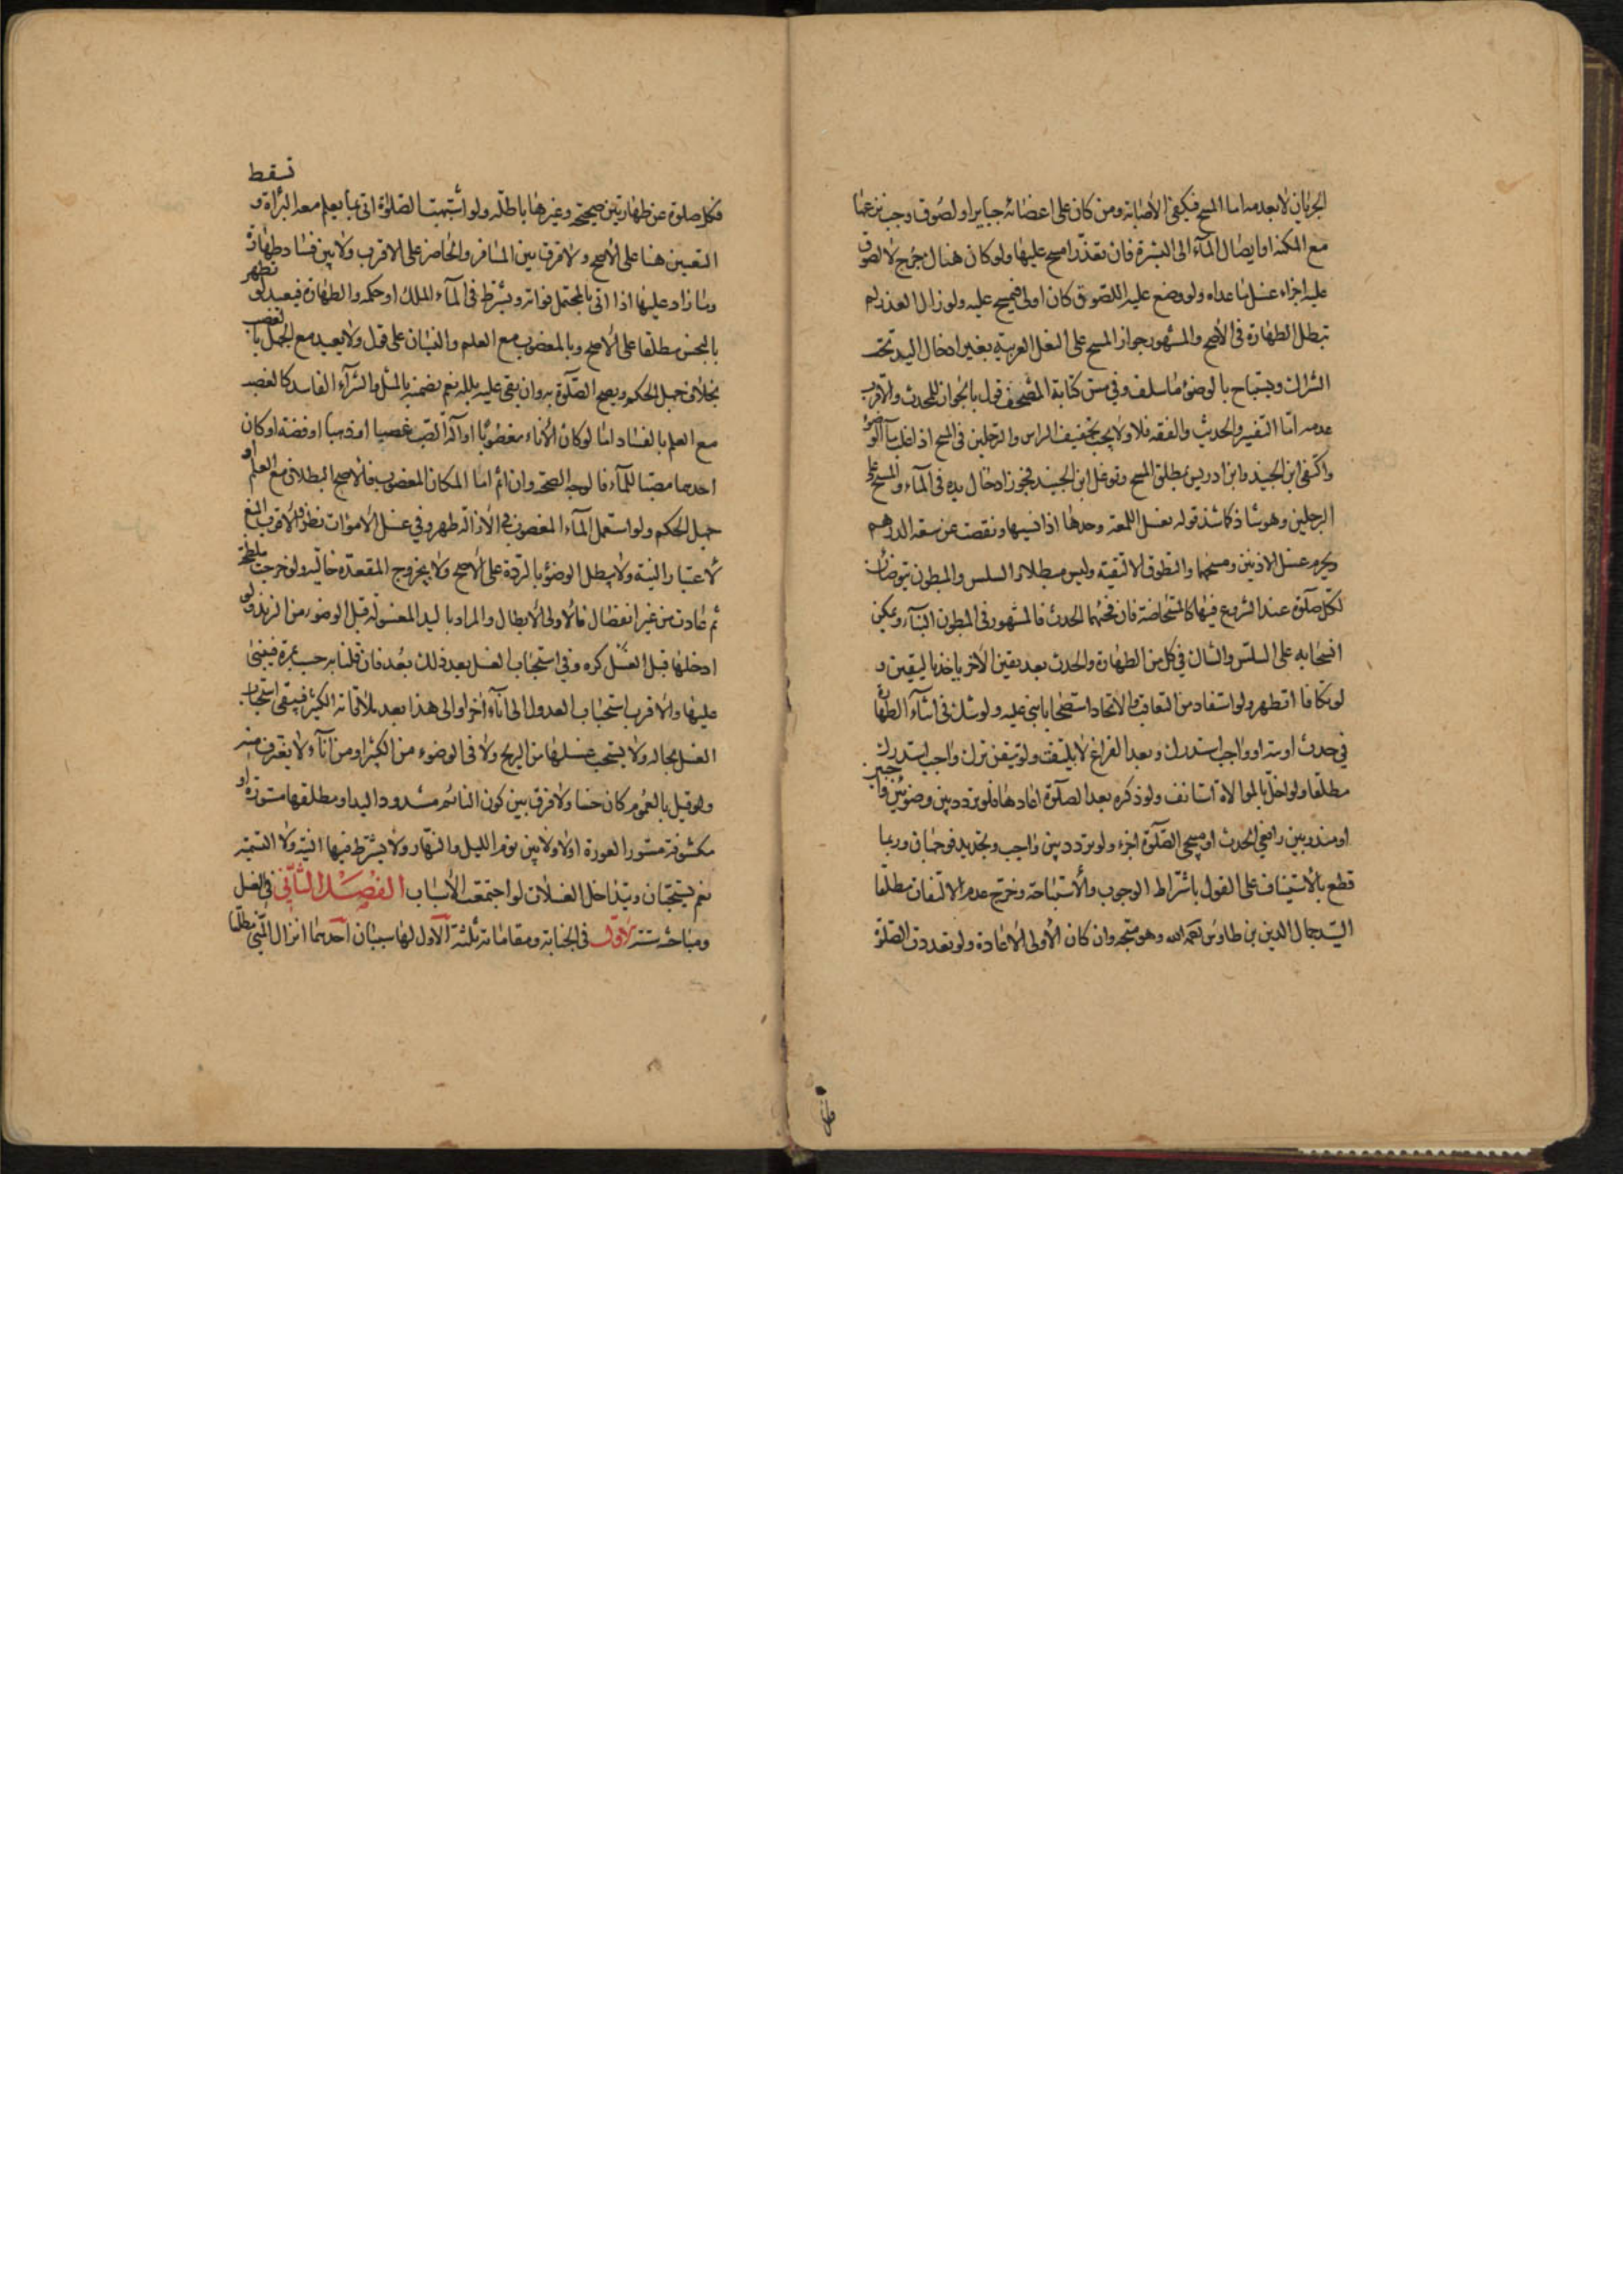 الجريان لا بعد مه اما المسح فيكفي الاصابة ومن كان على اعضائه جباير او لصوق وجب نزعها
مع المكنة او ايصال المآء الى البشرة فان تعذر امسح عليها ولو كان هناك جرح لا لصوق
عليه اجزاء غسل ما عداه ولو وضع عليه اللصوق كان اولى فيمسح عليه ولو زال العذر لم
تبطل الطهارة في الاصح والمشهور جواز المسح على النعل العربية بغير ادخال اليد تحت
الشراك ويستباح بالوضوء ما سلف وفي مس كتابة المصحف قول بالجواز للمحدث والاقرب
عدمه اما التفسير والحديث والفقه فلا ولا يجب تخفيف الراس والرجلين في المسح اذا غلب مآ الوضوء
واكتفى ابن الجنيد وابن ادريس بمطلق المسح وتوغل ابن الجنيد فجوز ادخال يده في المآء والمسح على
الرجلين وهو شاذ كما شذ قوله بغسل اللمعة وحدها اذا نسيها ونقصت عن سعة الدرهم
ويحرم غسل الاذنين ومسحهما والتطوق الا لتقية وليس مبطلا والسلس والمبطون يتوضأن
لكل صلوة عند الشروع فيها كالمستحاضة فان فجئهما الحدث فالمشهور في المبطون البنآء ويمكن
انسحابه على السلس والشاك في كل من الطهارة والحدث بعد يقين الاخر ياخذ باليقين و
لو تكافا تطهر ولو استفاد من التعاقب والاتحاد استصحابا بنى عليه ولو شك في اثنآء الطهارة
في حدث او نية او واجب استدرك وبعد الفراغ لا يلتفت ولو تيقن ترك واجب استدرك
مطلقا ولو اخل بالموالاة استانف ولو ذكره بعد الصلوة اعادها فلو تردد بين وضوئين واجبين
او مندوبين رافعي الحدث او مبيحي الصلوة اجزء ولو تردد بين واجب وتجديد فوجهان وربما
قطع بالاستيناف على القول باشتراط الوجوب والاستباحة وخرج عدم الالتفات مطلقا
السيد جمال الدين بن طاوس رحمه الله وهو متجه وان كان الاولى الاعادة ولو تعددت الصلوة
فكل صلوة عن طهارتين صحيحة وغيرها باطلة ولو اشتبهت الصلوة اتى بما يعلم معه البراة و تسقط
التعيين هنا على الاصح ولا فرق بين المسافر والحاضر على الاقرب ولا بين فساد طهارة
وما زاد عليها اذا اتى بالمحتمل فواته ويشترط في المآء الملك او حكمه والطهارة فيعيد لو تطهر
بالنجس مطلقا على الاصح وبالمغصوب مع العلم والنسيان على قول ولا يعيد مع الجهل بالغصب
بخلاف جهل الحكم ويصح الصلوة به وان بقى عليه بلله نعم يضمنه بالمثل والشرآء الفاسد كالغصب
مع العلم بالفساد اما لو كان الاناء مغصوبا او آلة الصب غصبا او ذهبا او فضة او كان
احدهما مصبا للمآء فالوجه الصحة وان اثم اما المكان المغصوب فالاصح البطلان مع العلم او
جهل الحكم ولو استعمل المآء المغصوب في الازالة طهر وفي غسل الاموات نظر والاقرب المنع
لاعتبار النية ولا يبطل الوضوء بالردة على الاصح ولا بخروج المقعدة خالية ولو خرجت ملطخة
ثم عادت من غير انفصال فالاولى الابطال والمراد باليد المغسولة قبل الوضوء من الزند ولو
ادخلها قبل الغسل كره وفي استحباب الغسل بعد ذلك بعد فان قلنا به حسب مرة فيبنى
عليها والاقرب استحباب العدول الى انآء اخر او الى هذا بعد ملاقاته الكثير فيبقى استحباب
الغسل بحاله ولا يستحب غسلها من الريح ولا في الوضوء من الكثير او من انآء لا يغترف منه
ولو قيل بالعموم كان حسنا ولا فرق بين كون النائم مشدود اليد او مطلقها مستورة او
مكشوفة مستور العورة اولا ولا بين نوم الليل والنهار ولا يشترط فيها النية ولا التسمية
نعم يستحبان ويتداخل الغسلات لو اجتمعت الاسباب الفصل الثاني في الغسل
ومباحثه ستة الاول في الجنابة ومقاماته ثلثة الاول لها سببان احدهما انزال المني مطلقا